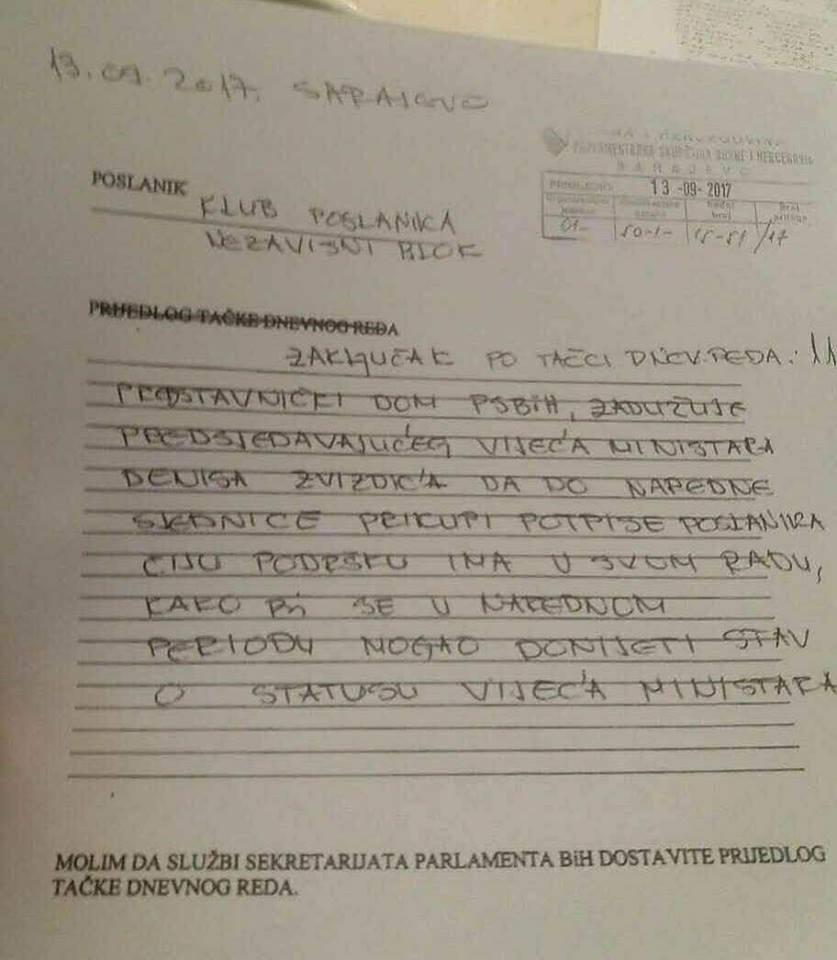 13.09.2017. SARAJEVO
PARLAMENTARNA SKUPŠTINA BOSNE I HERCEGOVINE
SARAJEVO
PRIMLJENO: 13-09-2017
01- 50-1- 15-51 /17
POSLANIK
KLUB POSLANIKA
NEZAVISNI BLOK
PRIJEDLOG TAČKE DNEVNOG REDA
ZAKLJUČAK PO TAČCI DNEV. REDA: 11
PREDSTAVNIČKI DOM PSBiH, ZADUŽUJE
PREDSJEDAVAJUĆEG VIJEĆA MINISTARA
DENISA ZVIZDIĆA DA DO NAREDNE
SJEDNICE PRIKUPI POTPISE POSLANIKA
ČIJU PODRŠKU IMA U SVOM RADU,
KAKO BI SE U NAREDNOM
PERIODU MOGAO DONIJETI STAV
O STATUSU VIJEĆA MINISTARA
MOLIM DA SLUŽBI SEKRETARIJATA PARLAMENTA BiH DOSTAVITE PRIJEDLOG
TAČKE DNEVNOG REDA.